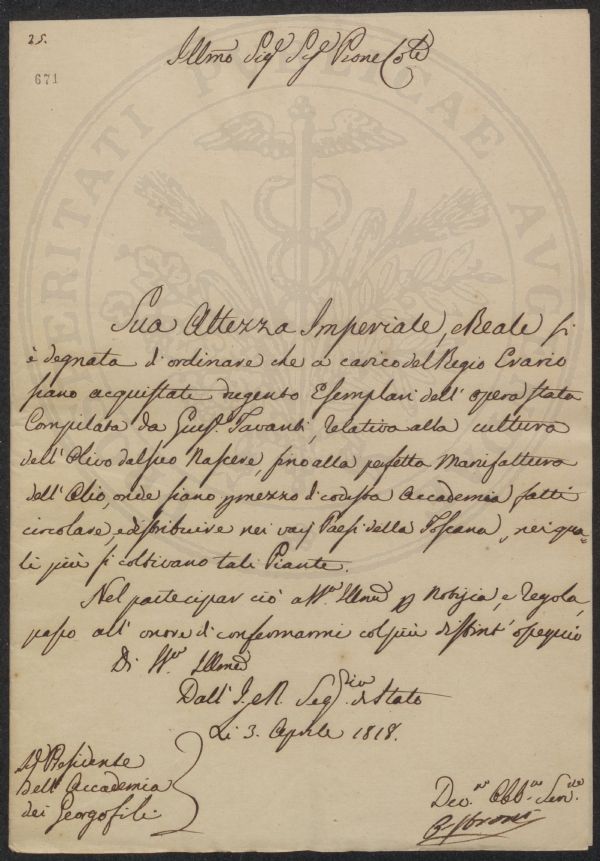 25.
671
Illmo Sigr Sigr Prone Colmo
Sua Altezza Imperiale, e Reale si
è degnata d'ordinare che a carico del Regio Erario
siano acquistati dugento Esemplari dell'opera stata
Compilata da Gius. Tavanti, relativa alla cultura
dell'Olivo dal suo Nascere, fino alla perfetta Manifattura
dell'Olio, onde siano p mezzo di codesta Accademia fatti
circolare, e distribuire nei varj Paesi della Toscana, nei qua=
li più si coltivano tali Piante.
Nel partecipar ciò a Illma p Notizia, e regola,
passo all'onore di confermarmi col più distint'ossequio
Di Illma
Dall'I. e R. Segria di Stato
Li 3. Aprile 1818.
Al Presidente
dell'Accademia
dei Georgofili
Devmo Obbmo Serre
VERITATI PUBLICAE AUG